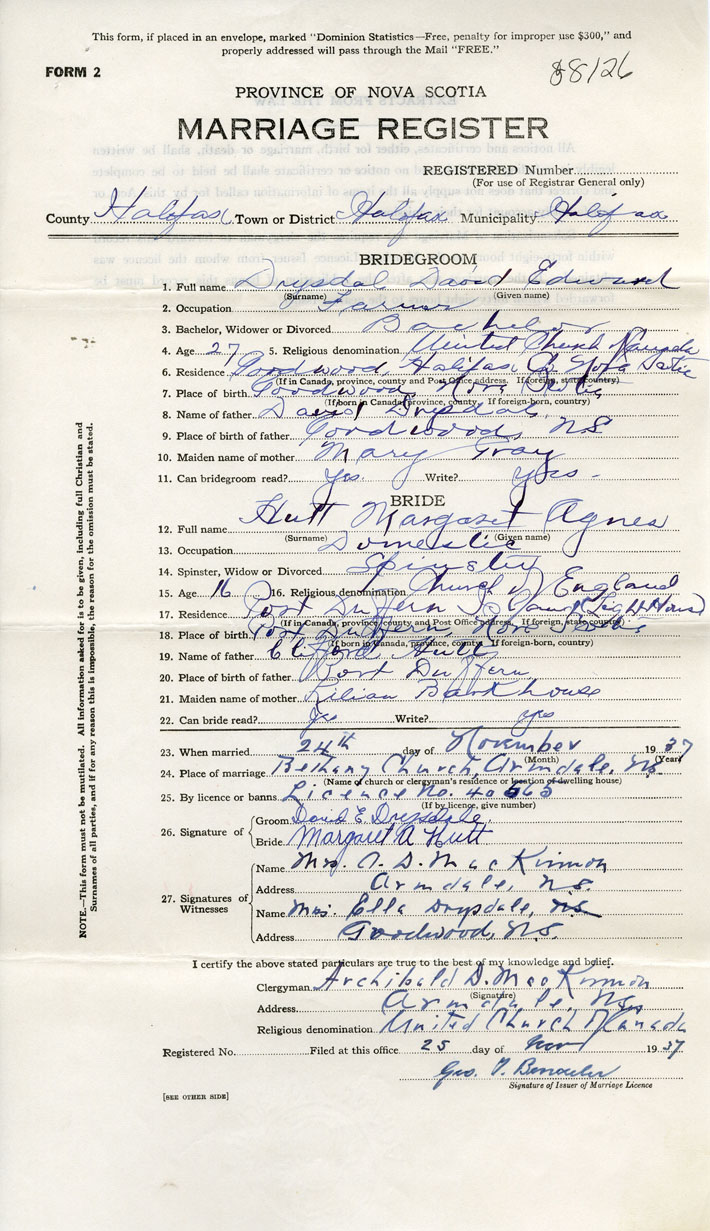 This form, if placed in an envelope, marked "Dominion Statistics—Free, penalty for improper use $300," and
properly addressed will pass through the Mail "FREE."
FORM 2
88126
PROVINCE OF NOVA SCOTIA
MARRIAGE REGISTER
REGISTERED Number
(For use of Registrar General only)
County Halifax Town or District Halifax Municipality Halifax
BRIDEGROOM
1. Full name Drysdale David Edward
(Surname) (Given name)
2. Occupation Farmer
3. Bachelor, Widower or Divorced Bachelor
4. Age 27 5. Religious denomination United Church Canada
6. Residence Goodwood, Halifax Co. Nova Scotia
(If in Canada, province, county and Post Office address. If foreign, state country)
7. Place of birth Goodwood Nova Scotia
(If born in Canada, province, county. If foreign-born, country)
8. Name of father David Drysdale
9. Place of birth of father Goodwood, N.S
10. Maiden name of mother Mary Gray
11. Can bridegroom read? Yes. Write? yes.
BRIDE
12. Full name Hutt Margaret Agnes
(Surname) (Given name)
13. Occupation Domestic
14. Spinster, Widow or Divorced Spinster
15. Age 16 16. Religious denomination Church of England
17. Residence Port Dufferin Light House
(If in Canada, province, county and Post Office address. If foreign, state country)
18. Place of birth Port Dufferin Nova Scotia
(If born in Canada, province, county. If foreign-born, country)
19. Name of father Clifford Hutt
20. Place of birth of father Port Dufferin
21. Maiden name of mother Lilian Barkhouse
22. Can bride read? Yes Write? yes
23. When married 24th day of November 1937
(Month) (Year)
24. Place of marriage Bethany Church, Armdale, N.S.
(Name of church or clergyman's residence or location of dwelling house)
25. By licence or banns Licence No. 40565
(If by licence, give number)
26. Signature of
Groom David E. Drysdale
Bride Margaret A Hutt
27. Signatures of Witnesses
Name Mrs. A. D. MacKinnon
Address Armdale, N.S.
Name Mrs. Ella Drysdale, N.S.
Address Goodwood, N.S.
I certify the above stated particulars are true to the best of my knowledge and belief.
Clergyman Archibald D. MacKinnon
(Signature)
Address Armdale, N.S.
Religious denomination United Church of Canada
Registered No. Filed at this office 25 day of Nov 1937.
Geo.
Signature of Issuer of Marriage Licence
[SEE OTHER SIDE]
NOTE.—This form must not be mutilated. All information asked for is to be given, including full Christian and
Surnames of all parties, and if for any reason this is impossible, the reason for the omission must be stated.